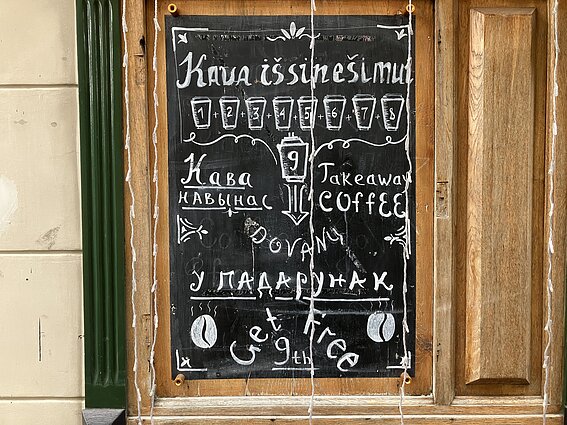 Kava išsinešimui
1 + 2 + 3 + 4 + 5 + 6 + 7 + 8
9
Кава Takeaway
НАВЫНАС COFFEE
DOVANŲ
У ПАДАРУНАК
Get Free
9th